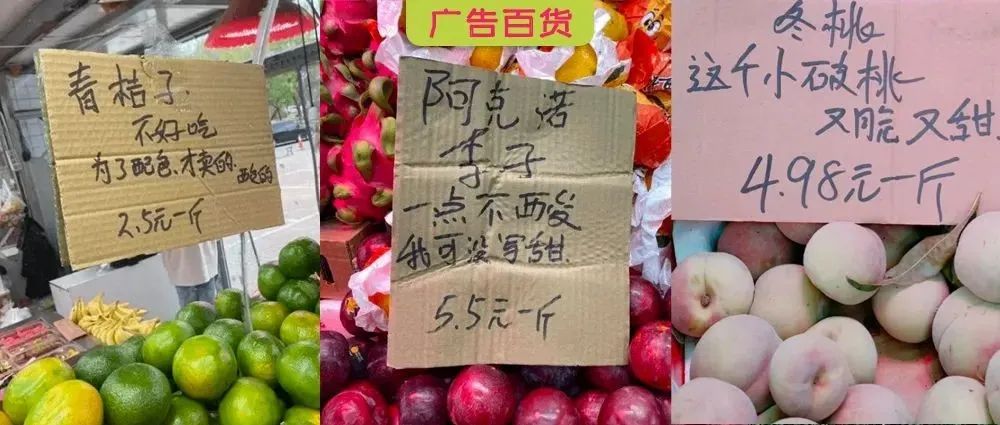 广告百货
青桔子.
不好吃
为了配色.才卖的.
2.5元一斤
阿克诺
李子
一点不酸
我可没写甜.
5.5元一斤
冬桃
这个小破桃
又脆又甜
4.98元一斤